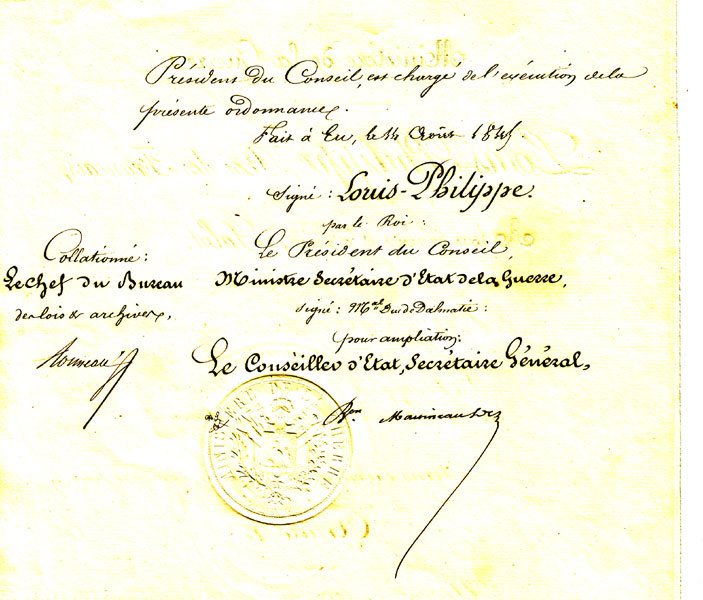 Président du Conseil, est chargé de l'exécution de la
présente ordonnance.
Fait à Eu, le 14 Août 1845
Signé : Louis-Philippe.
par le Roi :
Le Président du Conseil,
Ministre Secrétaire d'Etat de la Guerre,
signé : Mal Duc de Dalmatie :
pour ampliation:
Le Conseiller d'Etat, Secrétaire Général,
Bon Martineau
Collationné :
Le Chef du Bureau
des lois & archives,
MINISTERE DE LA GUERRE